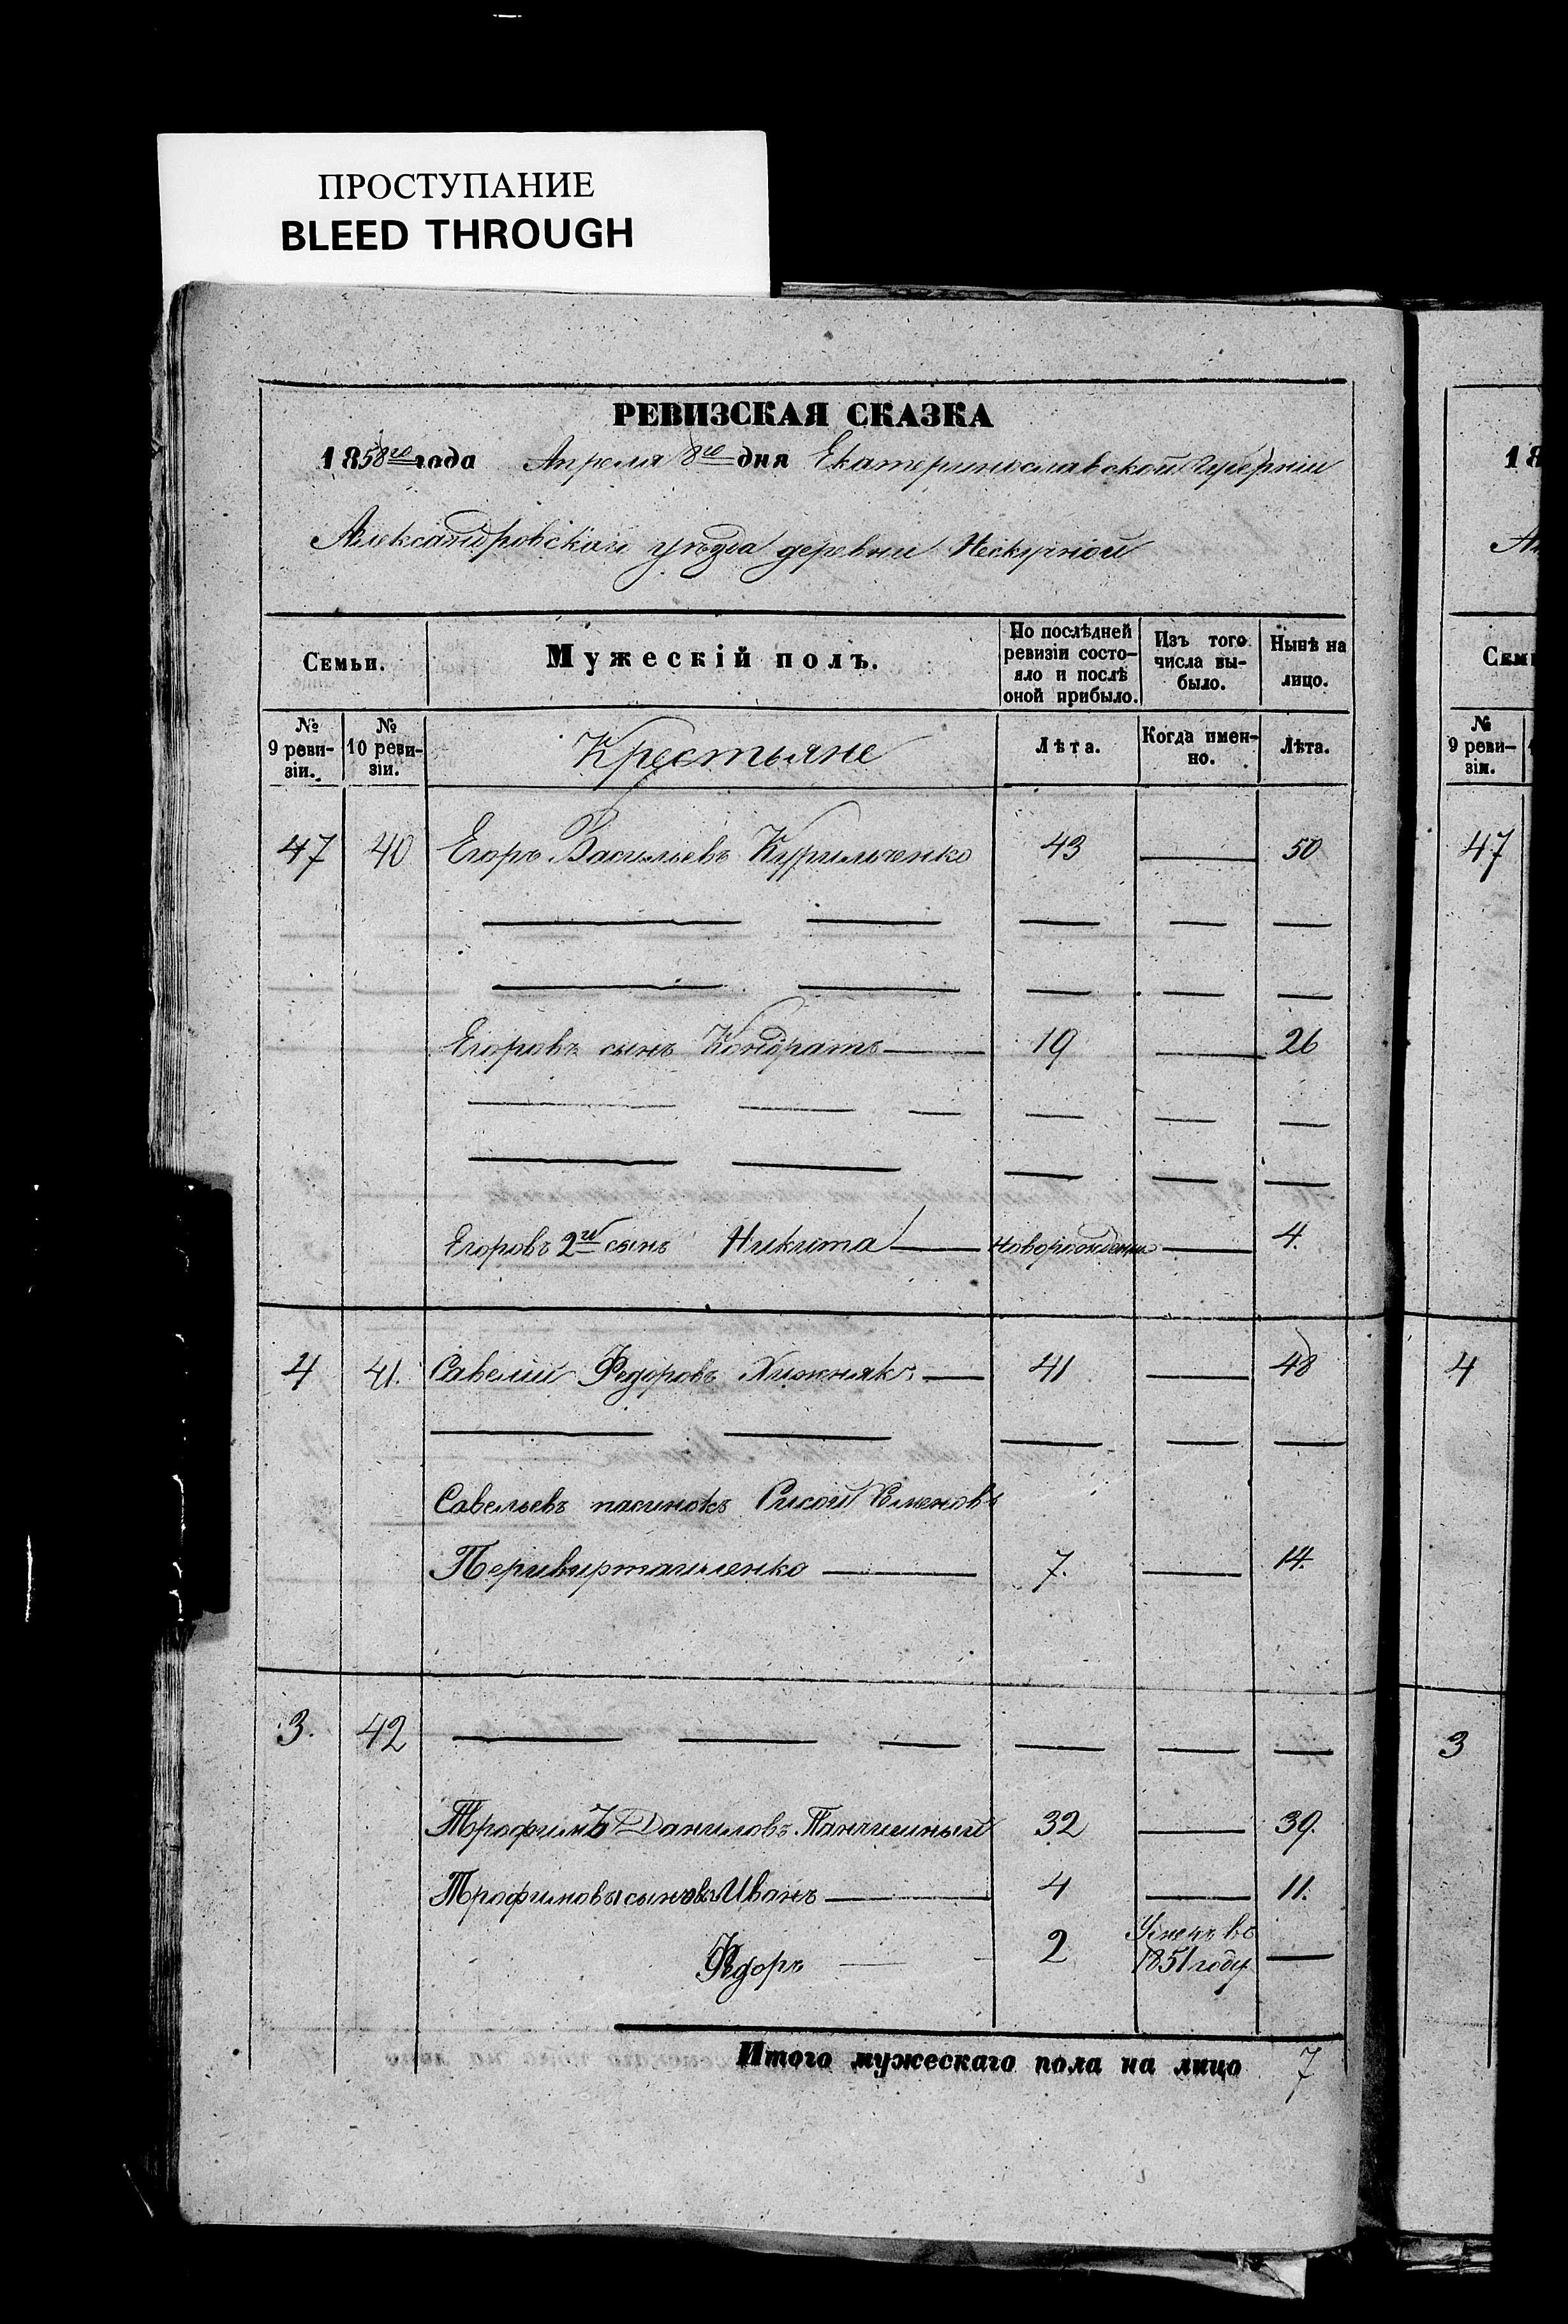 ПРОСТУПАНИЕ
BLEED THROUGH
РЕВИЗСКАЯ СКАЗКА
1858го года Апреля 8го дня Екатеринославской Губерніи
Александровскаго уѣзда деревни Нескучной
Семьи. Мужескій полъ. По послѣдней ревизіи состояло и послѣ оной прибыло. Изъ того числа выбыло. Нынѣ на лицо.
№ 9 ревизіи. № 10 ревизіи. Крестьяне Лѣта. Когда именно. Лѣта.
47 40 Егоръ Васильевъ Курильченко 43 — 50
Егоровъ сынъ Кондратъ — 19 — 26
Егоровъ 2й сынъ Никита — Новорожденъ — 4.
4 41. Савелий Федоровъ Хижнякъ — 41 — 48
Савельевъ пасинокъ
7. — 14.
3. 42
Трофимъ Даниловъ 32 — 39.
Трофимовы сыновья Иванъ — 4 — 11.
Федоръ — 2 Умеръ въ 1851 году —
Итого мужескаго пола на лицо 7
18
Ал
Семь
№ 9 ревизіи.
47
4
3